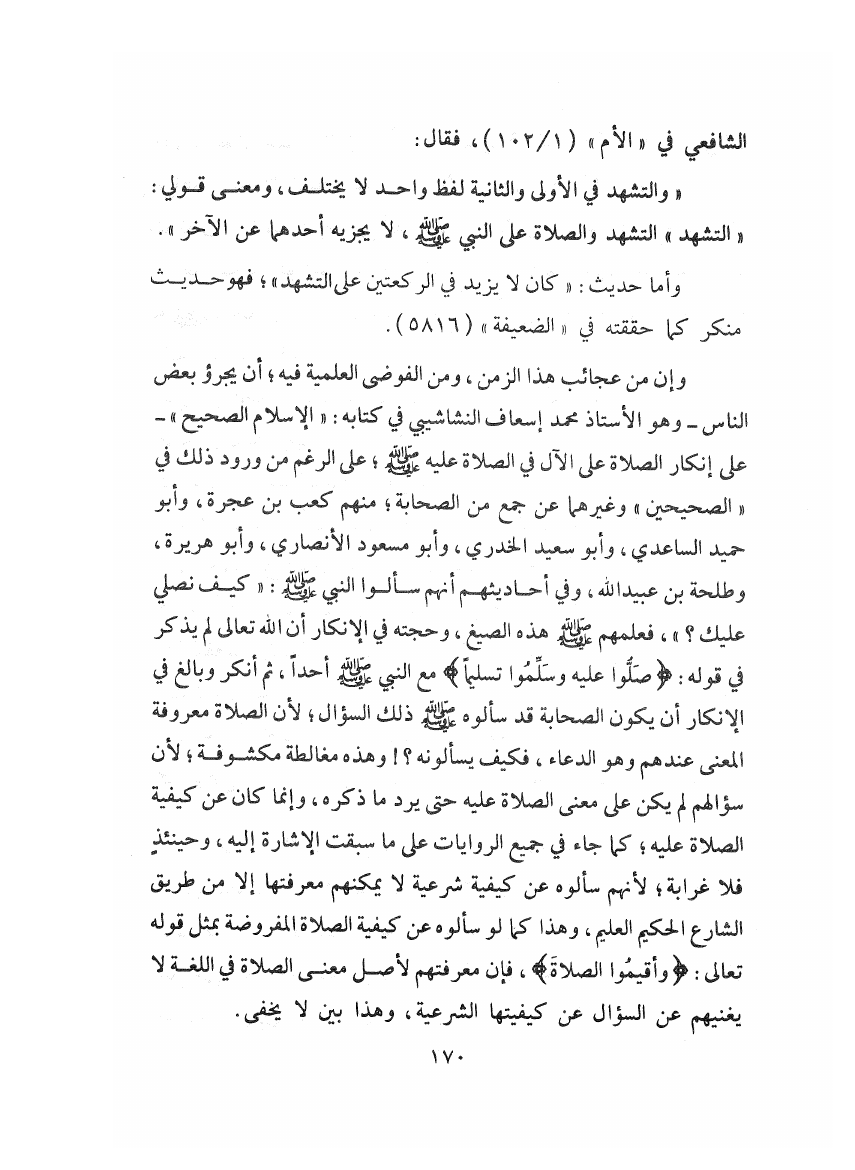 الشافعي في « الأم » (١/١٠٢)، فقال:
« والتشهد في الأولى والثانية لفظ واحد لا يختلف، ومعنى قولي:
« التشهد » التشهد والصلاة على النبي ﷺ، لا يجزيه أحدهما عن الآخر ».
وأما حديث: « كان لا يزيد في الركعتين على التشهد »؛ فهو حديث
منكر كما حققته في « الضعيفة » (٥٨١٦).
وإن من عجائب هذا الزمن، ومن الفوضى العلمية فيه؛ أن يجرؤ بعض
الناس ـ وهو الأستاذ محمد إسعاف النشاشيبي في كتابه: « الإسلام الصحيح » ـ
على إنكار الصلاة على الآل في الصلاة عليه ﷺ؛ على الرغم من ورود ذلك في
« الصحيحين » وغيرهما عن جمع من الصحابة؛ منهم كعب بن عجرة، وأبو
حميد الساعدي، وأبو سعيد الخدري، وأبو مسعود الأنصاري، وأبو هريرة،
وطلحة بن عبيدالله، وفي أحاديثهم أنهم سألوا النبي ﷺ: « كيف نصلي
عليك؟ »، فعلمهم ﷺ هذه الصيغ، وحجته في الإنكار أن الله تعالى لم يذكر
في قوله: ﴿صَلُّوا عليه وسَلِّمُوا تسليماً﴾ مع النبي ﷺ أحداً، ثم أنكر وبالغ في
الإنكار أن يكون الصحابة قد سألوه ﷺ ذلك السؤال؛ لأن الصلاة معروفة
المعنى عندهم وهو الدعاء، فكيف يسألونه؟! وهذه مغالطة مكشوفة؛ لأن
سؤالهم لم يكن على معنى الصلاة عليه حتى يرد ما ذكره، وإنما كان عن كيفية
الصلاة عليه؛ كما جاء في جميع الروايات على ما سبقت الإشارة إليه، وحينئذٍ
فلا غرابة؛ لأنهم سألوه عن كيفية شرعية لا يمكنهم معرفتها إلا من طريق
الشارع الحكيم العليم، وهذا كما لو سألوه عن كيفية الصلاة المفروضة بمثل قوله
تعالى: ﴿وأقيمُوا الصلاةَ﴾، فإن معرفتهم لأصل معنى الصلاة في اللغة لا
يغنيهم عن السؤال عن كيفيتها الشرعية، وهذا بين لا يخفى.
١٧٠